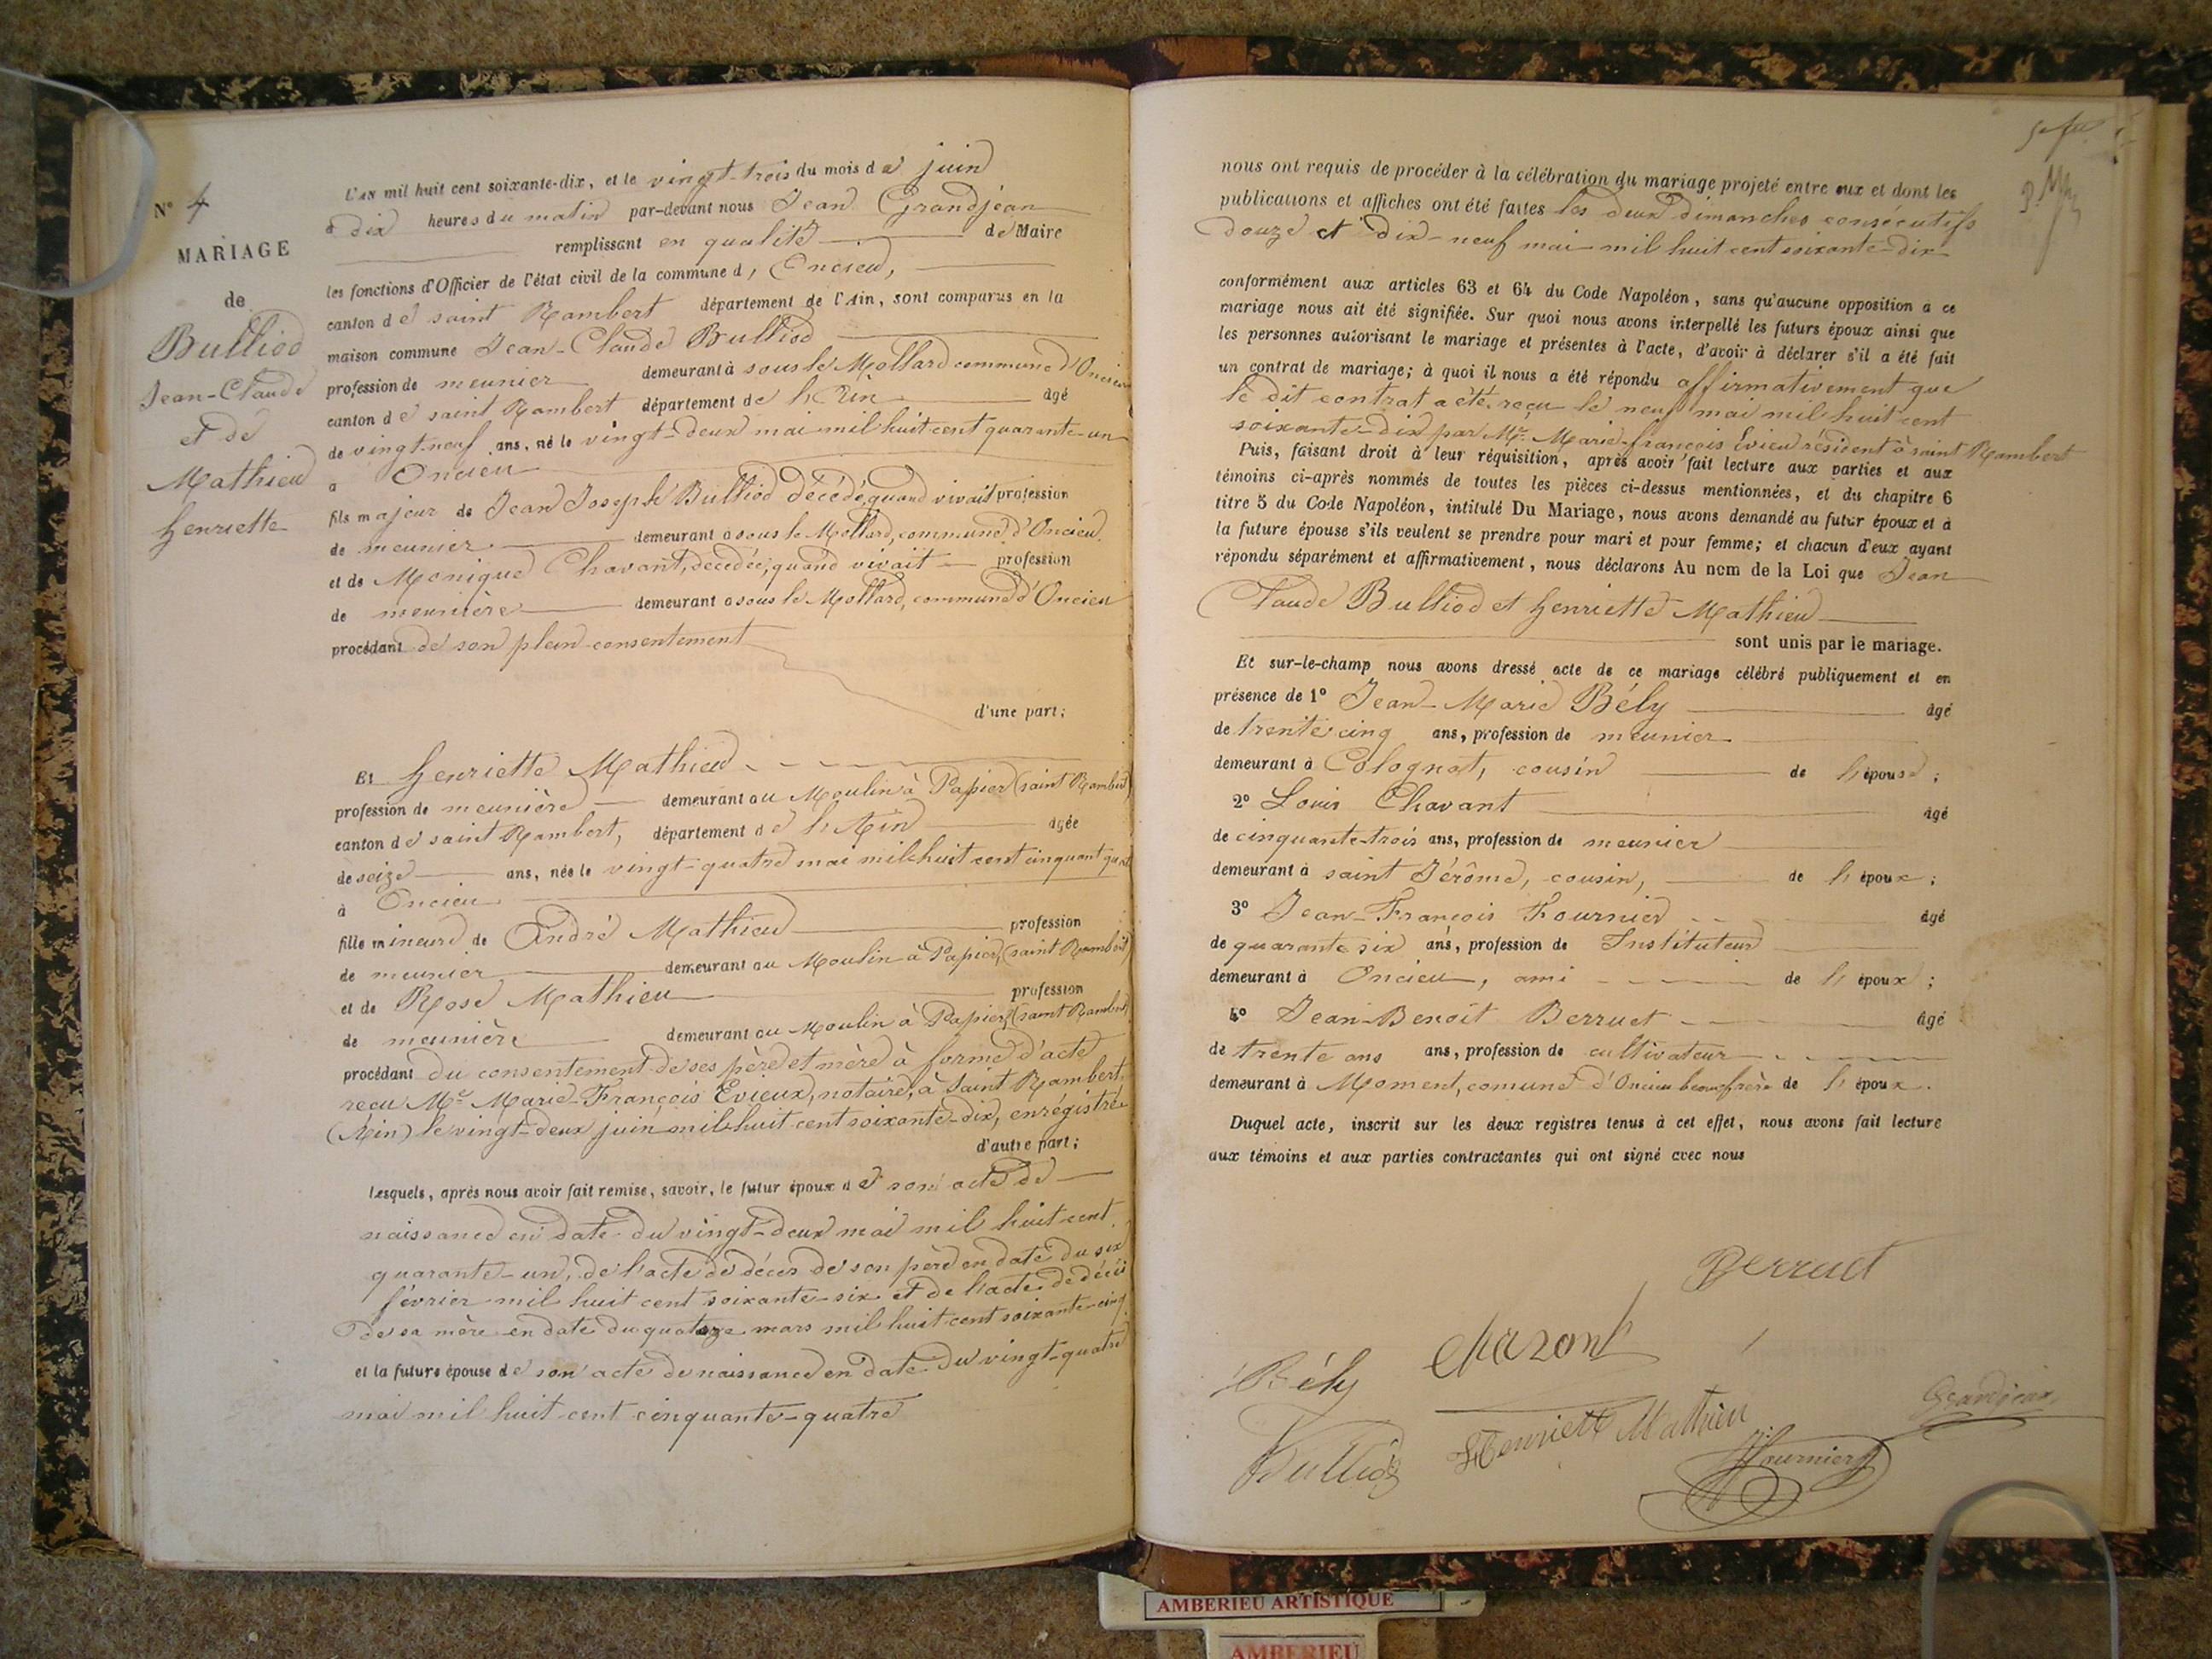 N° 4
MARIAGE
de
Bulliod
Jean-Claude
et de
Mathieu
henriette
L'an mil huit cent soixante-dix, et le vingt-trois du mois de juin
à dix heures du matin par-devant nous Jean Grandjean
remplissant en qualité de Maire
les fonctions d'Officier de l'état civil de la commune d, Oncieu,
canton de saint Rambert département de l'Ain, sont comparus en la
maison commune Jean-Claude Bulliod
profession de meunier demeurant à sous le Mollard commune d'Oncieu
canton de saint Rambert département de l'Ain agé
de vingt-neuf ans, né le vingt-deux mai mil huit cent quarante-un
a Oncieu
fils majeur de Jean Joseph Bulliod décédé, quand vivait profession
de meunier demeurant a sous le Mollard, commune d'Oncieu.
et de Monique Chavant, décédée, quand vivait profession
de meunière demeurant a sous le Mollard, commune d'Oncieu
procédant de son plein consentement
d'une part;
Et henriette Mathieu
profession de meunière demeurant au Moulin à Papier (saint Rambert)
canton de saint Rambert, département de l'Ain agée
de seize ans, née le vingt-quatre mai mil huit cent cinquant quat
à Oncieu
fille mineure de André Mathieu profession
de meunier demeurant au Moulin à Papier, (saint Rambert)
et de Rose Mathieu profession
de meunière demeurant au Moulin à Papier, (saint Rambert)
procédant du consentement de ses père et mère à forme d'acte
reçu Me Marie-François Evieux, notaire, à Saint Rambert
(Ain) le vingt-deux juin mil huit cent soixante-dix, enrégistré
d'autre part;
Lesquels, après nous avoir fait remise, savoir, le futur époux de son acte de
naissance en date du vingt-deux mai mil huit cent
quarante-un, de l'acte de décès de son père en date du six
février mil huit cent soixante-six et de l'acte de décès
de sa mère en date du quatorze mars mil huit cent soixante-cinq
et la future épouse de son acte de naissance en date du vingt-quatre
mai mil huit cent cinquante-quatre
nous ont requis de procéder à la célébration du mariage projeté entre eux et dont les
publications et affiches ont été faites les deux dimanches consecutifs
douze et dix-neuf mai mil huit cent soixante-dix
conformément aux articles 63 et 64 du Code Napoléon, sans qu'aucune opposition a ce
mariage nous ait été signifiée. Sur quoi nous avons interpellé les futurs époux ainsi que
les personnes autorisant le mariage et présentes à l'acte, d'avoir à déclarer s'il a été fait
un contrat de mariage; à quoi il nous a été répondu affirmativement que
le dit contrat a été reçu le neuf mai mil huit cent
soixante-dix par Me Marie-françois Evieu résident à saint Rambert
Puis, faisant droit à leur réquisition, après avoir fait lecture aux parties et aux
témoins ci-après nommés de toutes les pièces ci-dessus mentionnées, et du chapitre 6
titre 5 du Code Napoléon, intitulé Du Mariage, nous avons demandé au futur époux et à
la future épouse s'ils veulent se prendre pour mari et pour femme; et chacun d'eux ayant
répondu séparément et affirmativement, nous déclarons Au nom de la Loi que Jean
Claude Bulliod et henriette Mathieu
sont unis par le mariage.
Et sur-le-champ nous avons dressé acte de ce mariage célébré publiquement et en
présence de 1° Jean-Marie Bély agé
de trente-cinq ans, profession de meunier
demeurant à Colognat, cousin de l'épouse;
2° Louis Chavant agé
de cinquante-trois ans, profession de meunier
demeurant à saint Jérôme, cousin, de l'époux;
3° Jean-François Fournier agé
de quarante six ans, profession de Instituteur
demeurant à Oncieu, ami de l'époux;
4° Jean-Benoit Berruet agé
de trente ans ans, profession de cultivateur
demeurant à Moment, comune d'Oncieu beaufrère de l'époux.
Duquel acte, inscrit sur les deux registres tenus à cet effet, nous avons fait lecture
aux témoins et aux parties contractantes qui ont signé avec nous
Berruet
Chavant
Bély
Grandjean
Henriette Mathieu
Bulliod
Fournier
AMBERIEU ARTISTIQUE
AMBERIEU